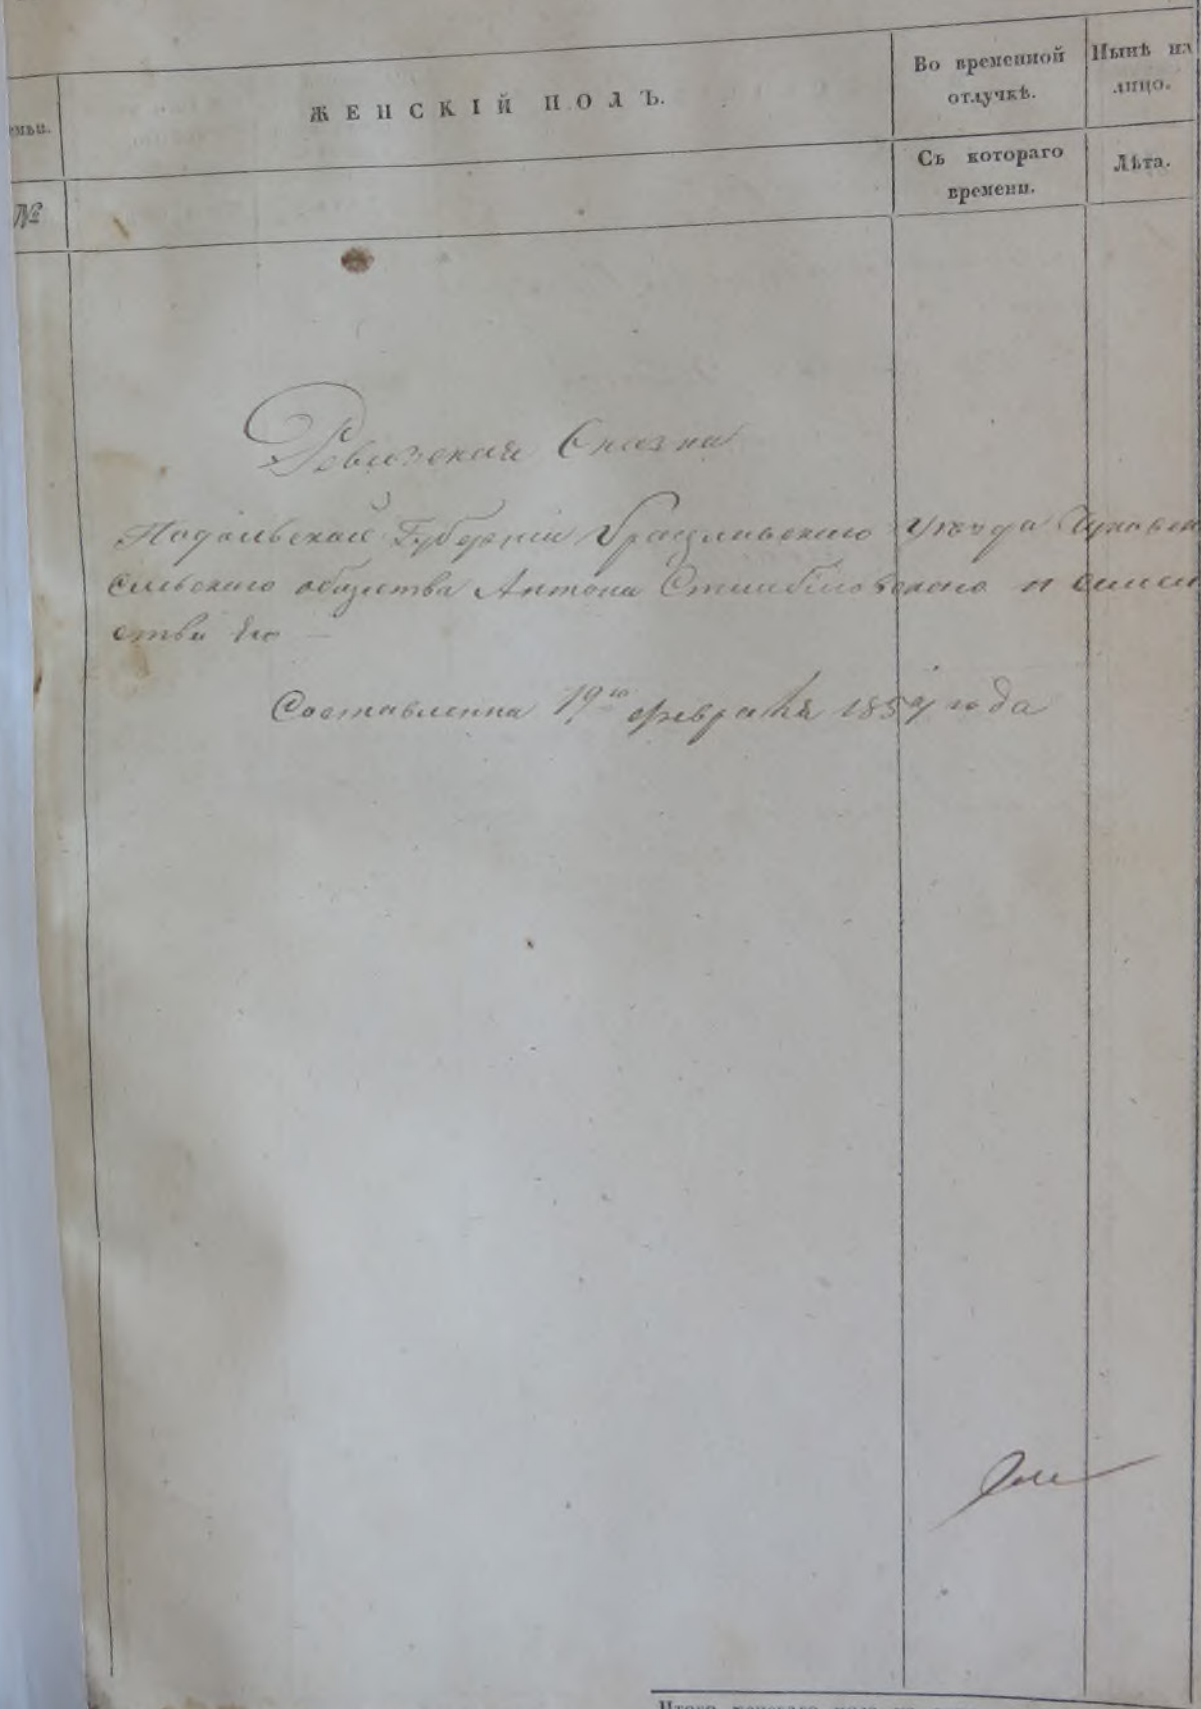 емьи.
ЖЕНСКІЙ ПОЛЪ.
Во временной
отлучкѣ.
Нынѣ на
лицо.
№
Съ котораго
времени.
Лѣта.
Ревизская Сказка
Подольской Губерніи Брацлавскаго Уѣзда
сельскаго общества Антона и семей
ства Его —
Составленна 19го февраля года
Итого женскаго пола на